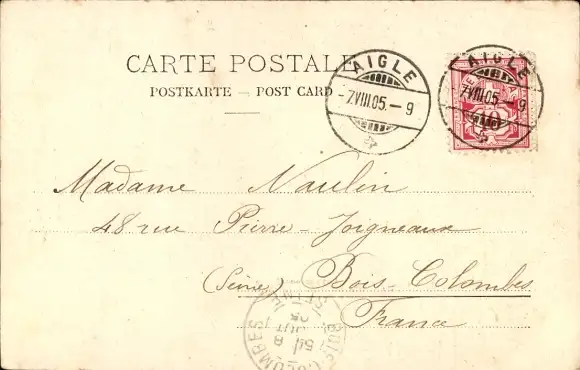 CARTE POSTALE
POSTKARTE — POST CARD
AIGLE
-7.VIII.05.-9
AIGLE
-7.VIII.05.-9
10
Madame Naulin
48 rue Pierre-Joigneaux
(Seine) Bois-Colombes
France
BOIS-COLOMBES
SEINE